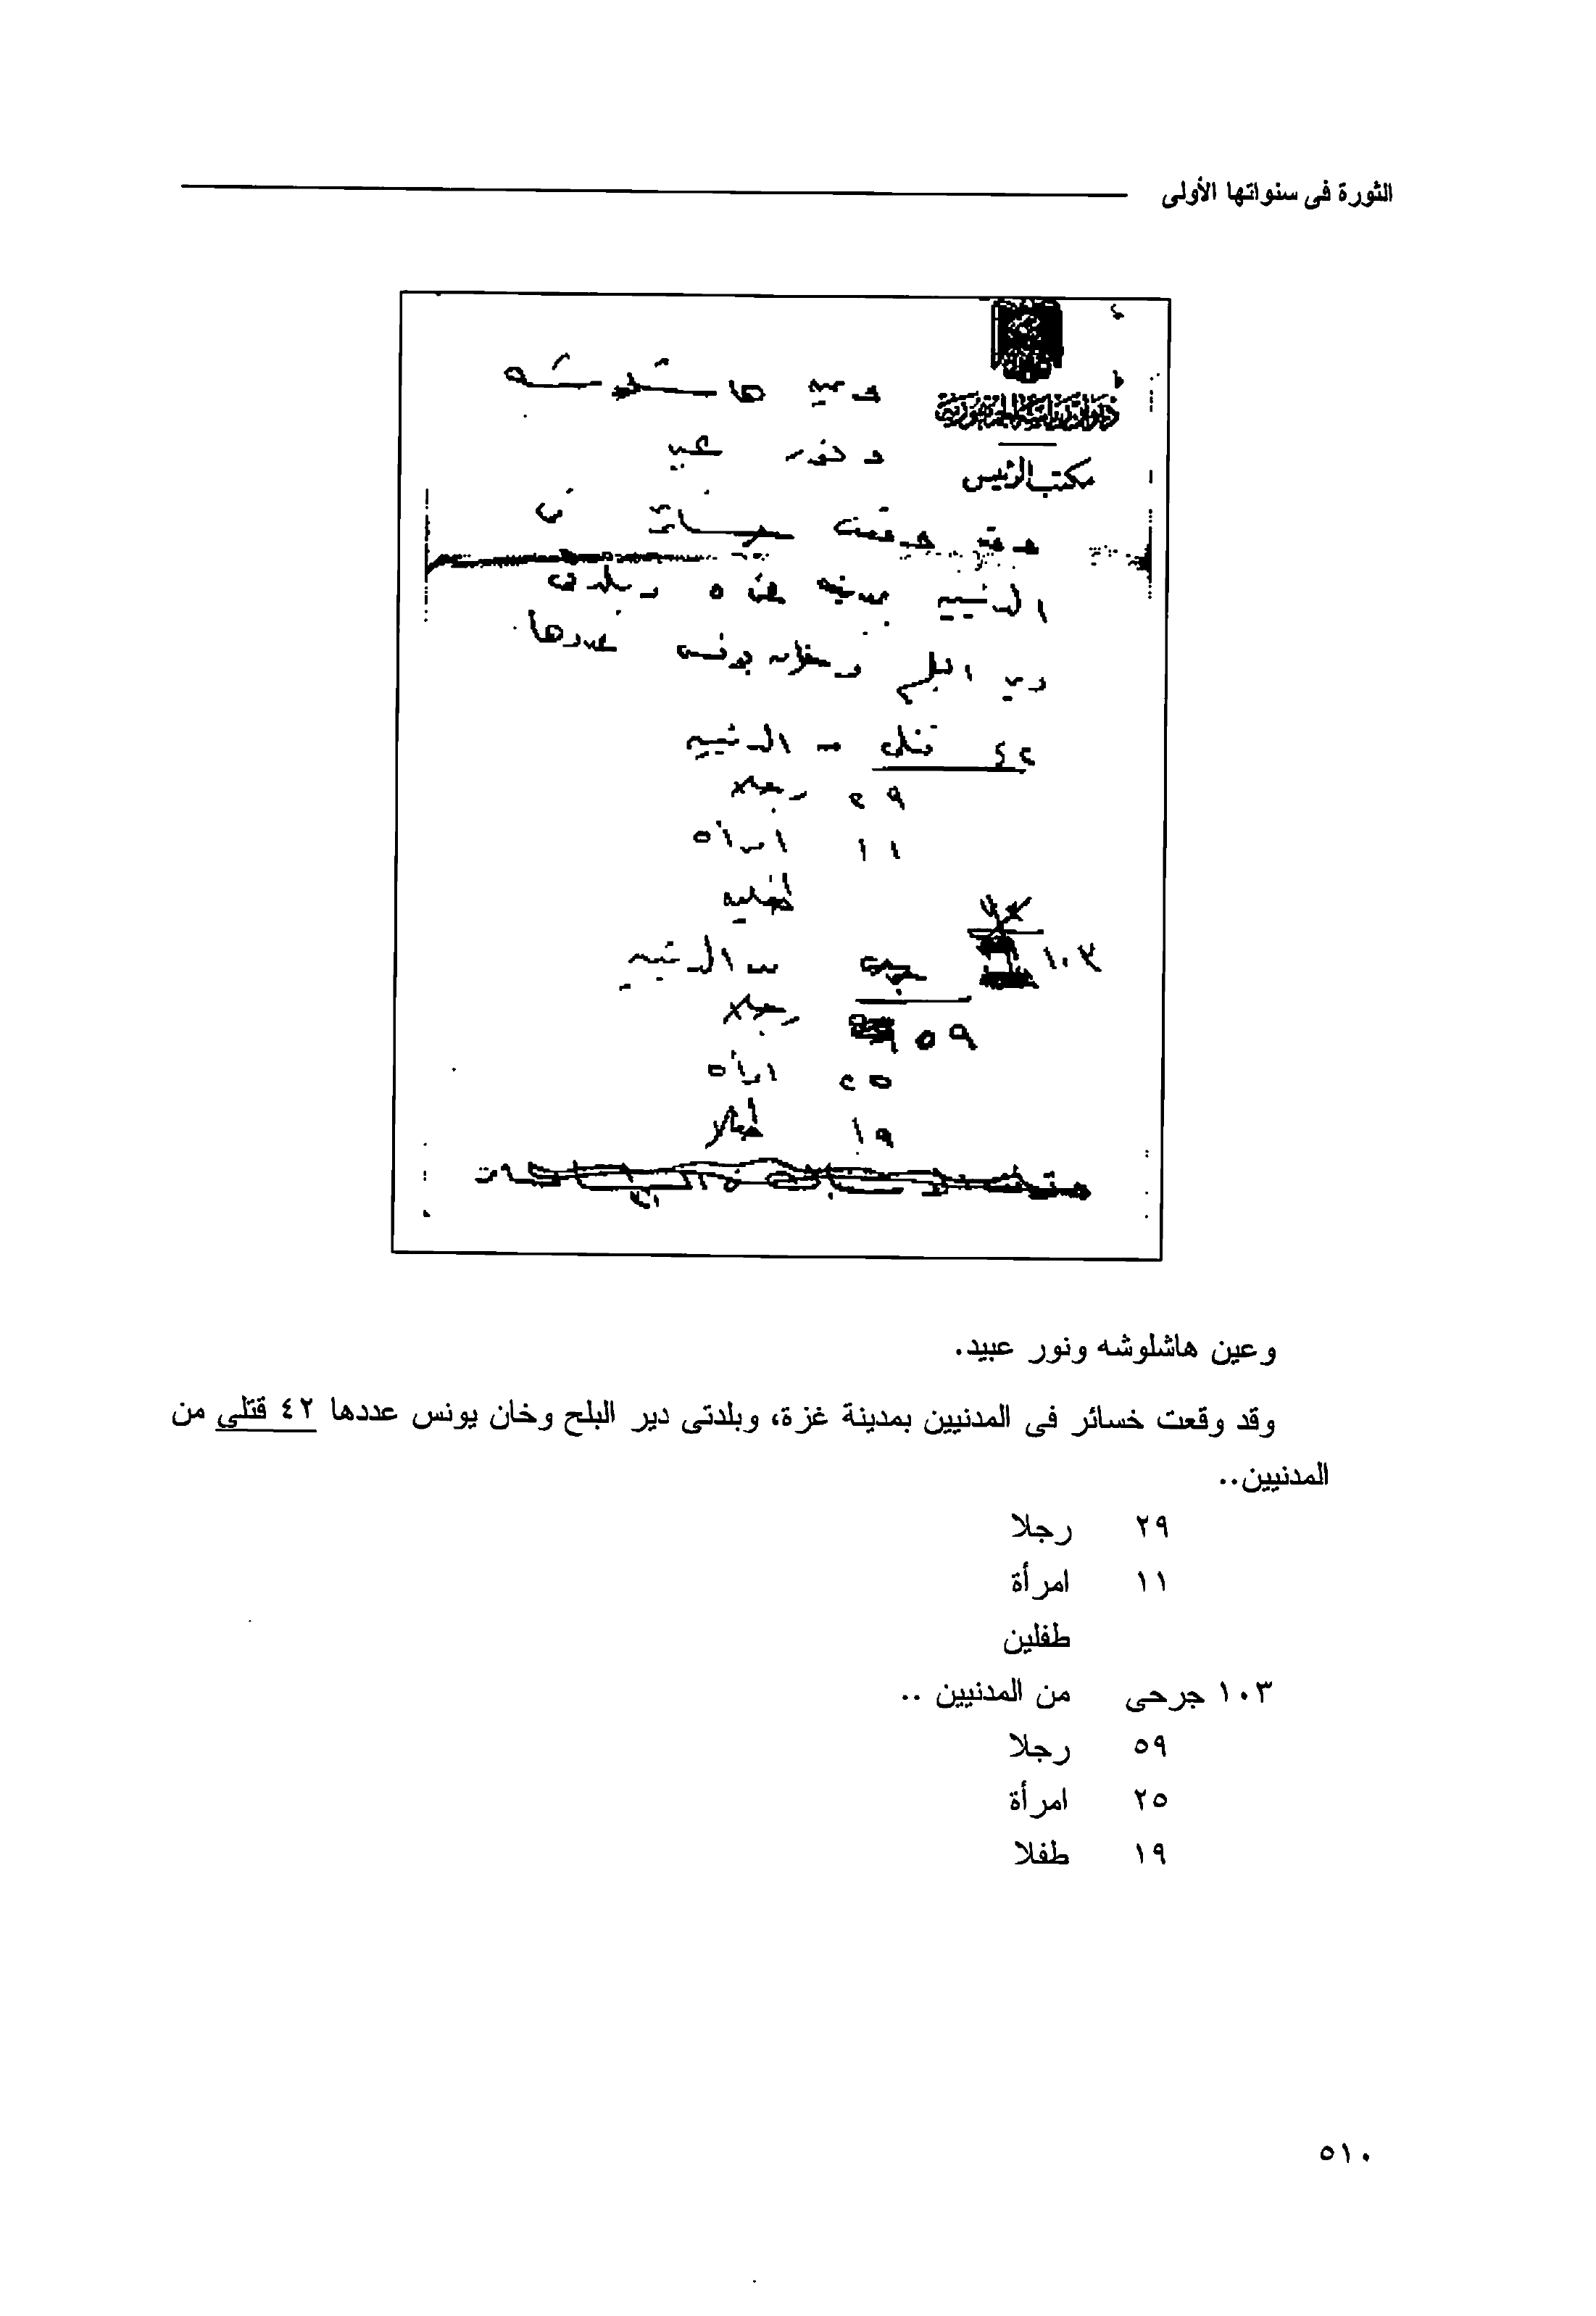 الثورة فى سنواتها الأولى
ديوان رئاسة الجمهورية
مكتب الرئيس
وعين هاشلوشه
ونور عبيد
وقد وقعت خسائر فى
المدنيين بمدينة غزه وبلدتى
دير البلح وخان يونس عددها
٤٢ قتلى من المدنيين
٢٩ رجلا
١١ امرأه
طفلين
١٠٣ جرحى من المدنيين
٥٩ رجلا
٢٥ امرأه
١٩ طفلا
وعين هاشلوشه ونور عبيد.
وقد وقعت خسائر فى المدنيين بمدينة غزة، وبلدتى دير البلح وخان يونس عددها ٤٢ قتلى من
المدنيين..
٢٩ رجلا
١١ امرأة
طفلين
١٠٣ جرحى من المدنيين ..
٥٩ رجلا
٢٥ امرأة
١٩ طفلا
٥١٠